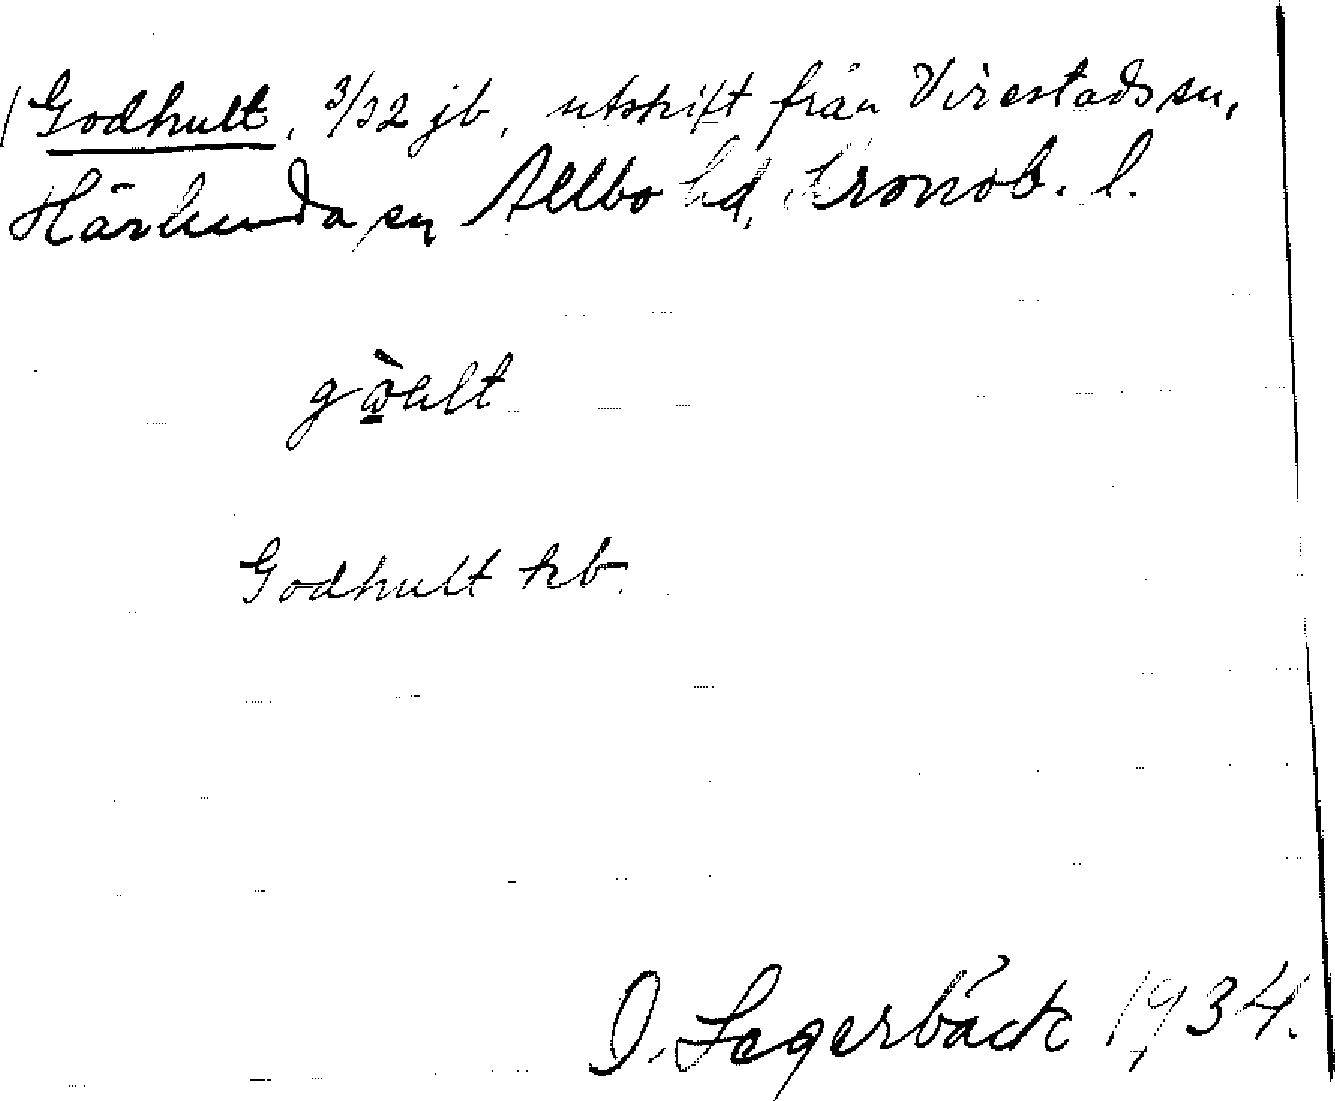 Godhult, 3/32 jb, utskift från Virestads sn,
Härlunda sn Allbo hd, Kronob. l.
Godhult kb.
Segerbäck 1934.